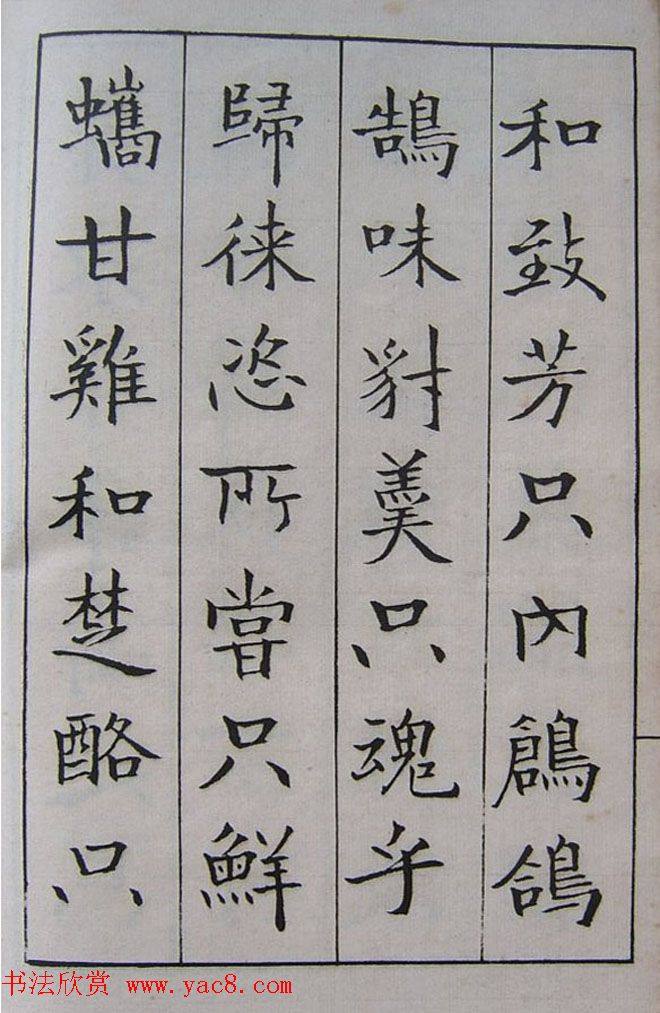 和致芳只內鶬鴿
鵠味豺羹只魂乎
歸徠恣所嘗只鮮
蠵甘雞和楚酪只
书法欣赏 www.yac8.com